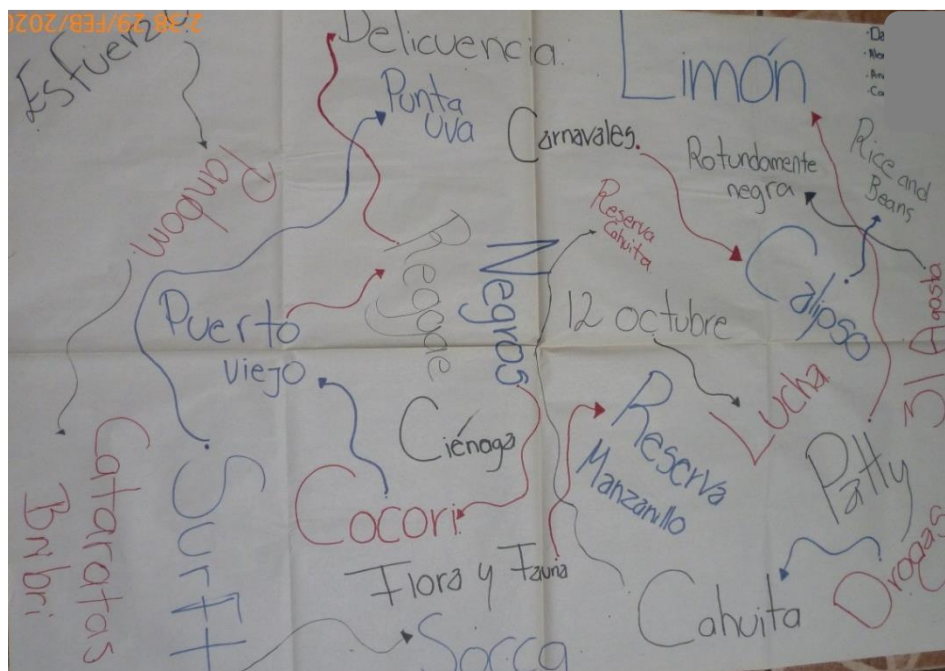 2:38 29/FEB/2020
Esfuerzo
Delicuencia
Punta
Uva
Limón
Carnavales.
Rotundamente
negra
Rice and
Beans
Panbom
Reggae
Negros
Reserva
Cahuita
Calipso
31 Agosto
Puerto
Viejo
12 octubre
Lucha
Ciénoga
Reserva
Manzanillo
Patty
Cataratas
Bribri
Surft
Cocori
Flora y Fauna
Cahuita
Drogas
Socca